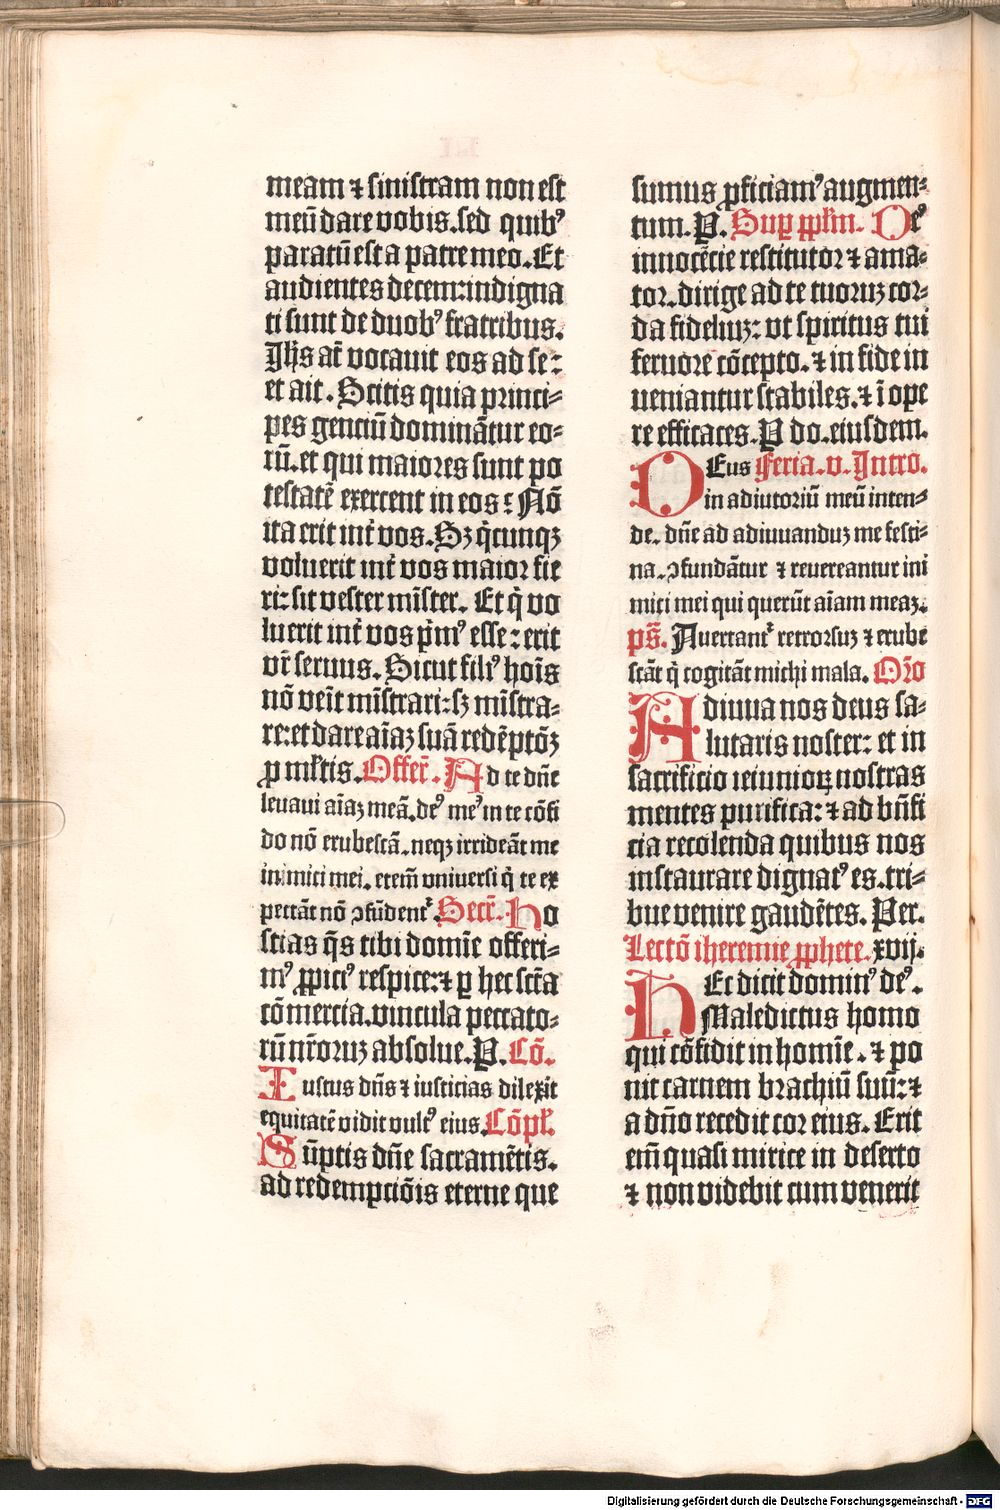 meam ⁊ sinistram non est
meū dare vobis. sed quibꝰ
paratū est a patre meo. Et
audientes decem: indigna
ti sunt de duobꝰ fratribus.
Jhs at̄ vocauit eos ad se:
et ait. Scitis quia princi⸗
pes genciū dominātur eo⸗
rū. et qui maiores sunt po
testatē exercent in eos: Nō
ita erit int̄ vos. Sꝫ q̄cunqꝫ
voluerit int̄ vos maior fie
ri: sit vester mīster. Et q̄ vo
luerit int̄ vos p̄mꝰ esse: erit
vr̄ seruus. Sicut filiꝰ hoīs
nō veīt mīstrari: sꝫ mīstra⸗
re: et dare aīaꝫ suā redēptōꝫ
ꝓ ml̄tis. Offert̄. Ad te dn̄e
leuaui aīaꝫ meā. deꝰ meꝰ in te cōfi
do nō erubescā. neqꝫ irrideāt me
inimici mei. etem̄ vniuersi q̄ te ex
pectāt nō ↄfūdent᷑. Secr̄. Ho
stias q̄s tibi domīe offeri⸗
mꝰ ꝓpicꝰ respice: ⁊ ꝑ hec sct̄a
cōmercia. vincula peccato⸗
rū nr̄oruꝫ absolue. P. Cō.
Iustus dn̄s ⁊ iusticias dilexit
equitatē vidit vultꝰ eius. Cōpl̄.
Sūptis dn̄e sacramētis.
ad redempciōis eterne que
sumus ꝓficiamꝰ augmen⸗
tum. P. Suꝑ ppl̄m. Deꝰ
innocēcie restitutor ⁊ ama⸗
tor. dirige ad te tuoruꝫ cor⸗
da fideliuꝫ: vt spiritus tui
feruore cōcepto. ⁊ in fide in
ueniantur stabiles. ⁊ ī ope
re efficaces. P do. eiusdem.
DEus Feria. v. Intro.
in adiutoriū meū inten⸗
de. dn̄e ad adiuuanduꝫ me festi⸗
na. ↄfundātur ⁊ reuereantur ini
mici mei qui querūt aīam meaꝫ.
ps̄. Auertant᷑ retrorsuꝫ ⁊ erube
scāt q̄ cogitāt michi mala. Or̄o
Adiuua nos deus sa⸗
lutaris noster: et in
sacrificio ieiunioꝝ nostras
mentes purifica: ⁊ ad bn̄fi
cia recolenda quibus nos
instaurare dignatꝰ es. tri⸗
bue venire gaudētes. Per.
Lectō iheremie ꝓphete. xvij.
HEc dicit dominꝰ deꝰ.
Maledictus homo
qui cōfidit in homīe. ⁊ po
nit carnem brachiū suū: ⁊
a dn̄o recedit cor eius. Erit
em̄ quasi mirice in deserto
⁊ non videbit cum venerit
Digitalisierung gefördert durch die Deutsche Forschungsgemeinschaft - DFG